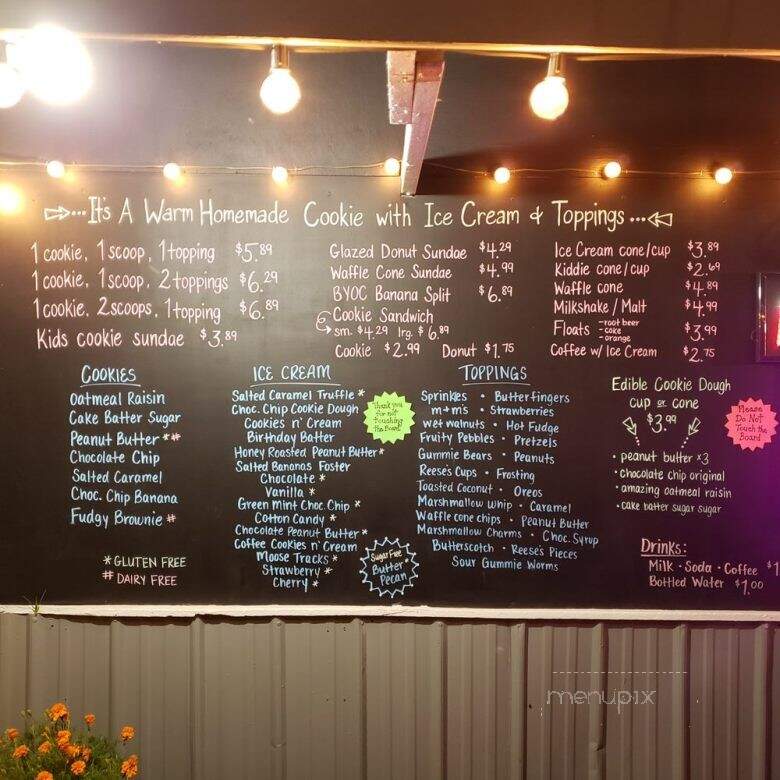 It's A Warm Homemade Cookie with Ice Cream & Toppings
1 cookie, 1 scoop, 1 topping $5.89
1 cookie, 1 scoop, 2 toppings $6.29
1 cookie, 2 scoops, 1 topping $6.89
Kids cookie sundae $3.89
Glazed Donut Sundae $4.29
Waffle Cone Sundae $4.99
BYOC Banana Split $6.89
Cookie Sandwich
sm. $4.29 lrg. $6.89
Cookie $2.99 Donut $1.75
Ice Cream cone/cup $3.89
Kiddie cone/cup $2.69
Waffle cone $4.89
Milkshake/Malt $4.99
Floats - root beer - coke - orange $3.99
Coffee w/ Ice Cream $2.75
COOKIES
Oatmeal Raisin
Cake Batter Sugar
Peanut Butter *#
Chocolate Chip
Salted Caramel
Choc. Chip Banana
Fudgy Brownie #
* GLUTEN FREE
# DAIRY FREE
ICE CREAM
Salted Caramel Truffle *
Choc. Chip Cookie Dough
Cookies n' Cream
Birthday Batter
Honey Roasted Peanut Butter *
Salted Bananas Foster
Chocolate *
Vanilla *
Green Mint Choc. Chip *
Cotton Candy *
Chocolate Peanut Butter *
Coffee Cookies n' Cream
Moose Tracks *
Strawberry *
Cherry *
Thank you
for not
touching
the Board
Sugar Free
Butter
Pecan
TOPPINGS
Sprinkles • Butterfingers
m+m's • Strawberries
wet walnuts • Hot Fudge
Fruity Pebbles • Pretzels
Gummie Bears • Peanuts
Reese's Cups • Frosting
Toasted Coconut • Oreos
Marshmallow Whip • Caramel
Waffle cone chips • Peanut Butter
Marshmallow Charms • Choc. Syrup
Butterscotch • Reese's Pieces
Sour Gummie Worms
Edible Cookie Dough
cup or cone
$3.99
• peanut butter
• chocolate chip original
• amazing oatmeal raisin
• cake batter sugar
Please
Do Not
Touch the
Board
Drinks:
Milk • Soda • Coffee $1
Bottled Water $1.00
menupix